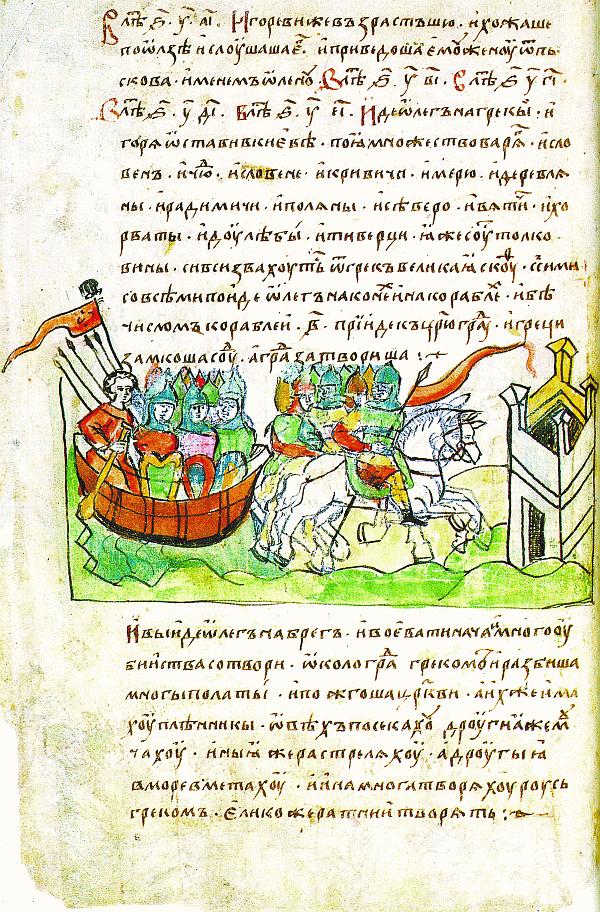 В лѣⷮ ҂ѕ҃. у҃. аі҃. Игоревижевъзрастъшю · ихожаше
поѡлзѣ ислоушашаеⷢ · иприведошаемоуженоуѿпь
скова · именемъѡлену · Влѣⷮ ҂ѕ҃. у҃ ві҃. Влѣⷮ ҂ѕ҃ у҃ гі҃.
Влѣⷮ ҂ѕ҃. у҃ ді҃. Влѣⷮ ҂ѕ҃. у҃ еі҃. Идеѡлегънагрекы · и
горѧѡставивкиевѣ · поимножествоварѧⷢ · исло
венъ · ичюⷣ · исловене · икривичи · имерю · идеревлѧ
ны · ирадимичи · иполѧны · исѣверо · ивѧтиⷱ · ихо
рваты · идоулѣбы · итиверци · ꙗжесоуⷮтолко
вины · сивсизвахоутьⷭ ѿгрекъвеликаꙗскоуⷴ · ссими
совсѣмипоидеѡлегънаконеⷯинакораблеⷯ · ибѣ
числомъкораблеи · ҂в҃ · прїидекъцр҃юграⷣ · игреци
замкошасоуⷣ · аграⷣзатвориша :·
ИвыидеѡлегънабрегЪ · ивоеватинача · имногооу
биистваствори · ѡколограⷣ грекомъ · иразбиша
многыполаты · ипожгошацр҃кви · аихжеима
хоуплѣнникы · ѡвѣхъпосекахоу дроугиꙗжемⷹ
чахоу · иныꙗжерастрелѧхоу · адроугыꙗ
вморевметахоу · иинамногатворѧхоуроусь
грекомъ · еликожератниитворѧть :·